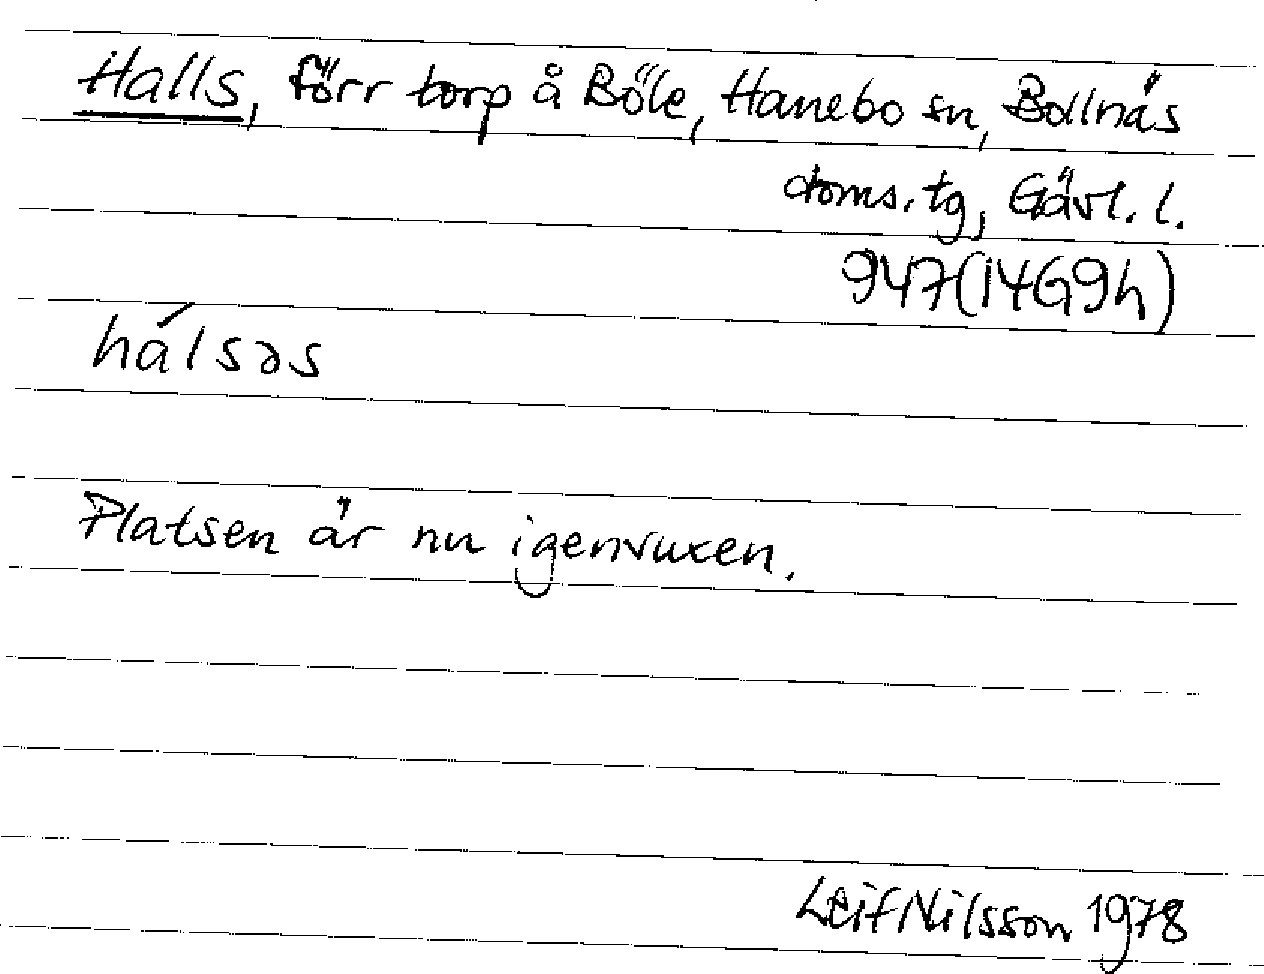 Halls, förr torp å Böle, Hanebo sn, Bollnäs
doms.tg, Gävl. l.
947(14G9h)
hálsəs
Platsen är nu igenvuxen.
Leif Nilsson 1978